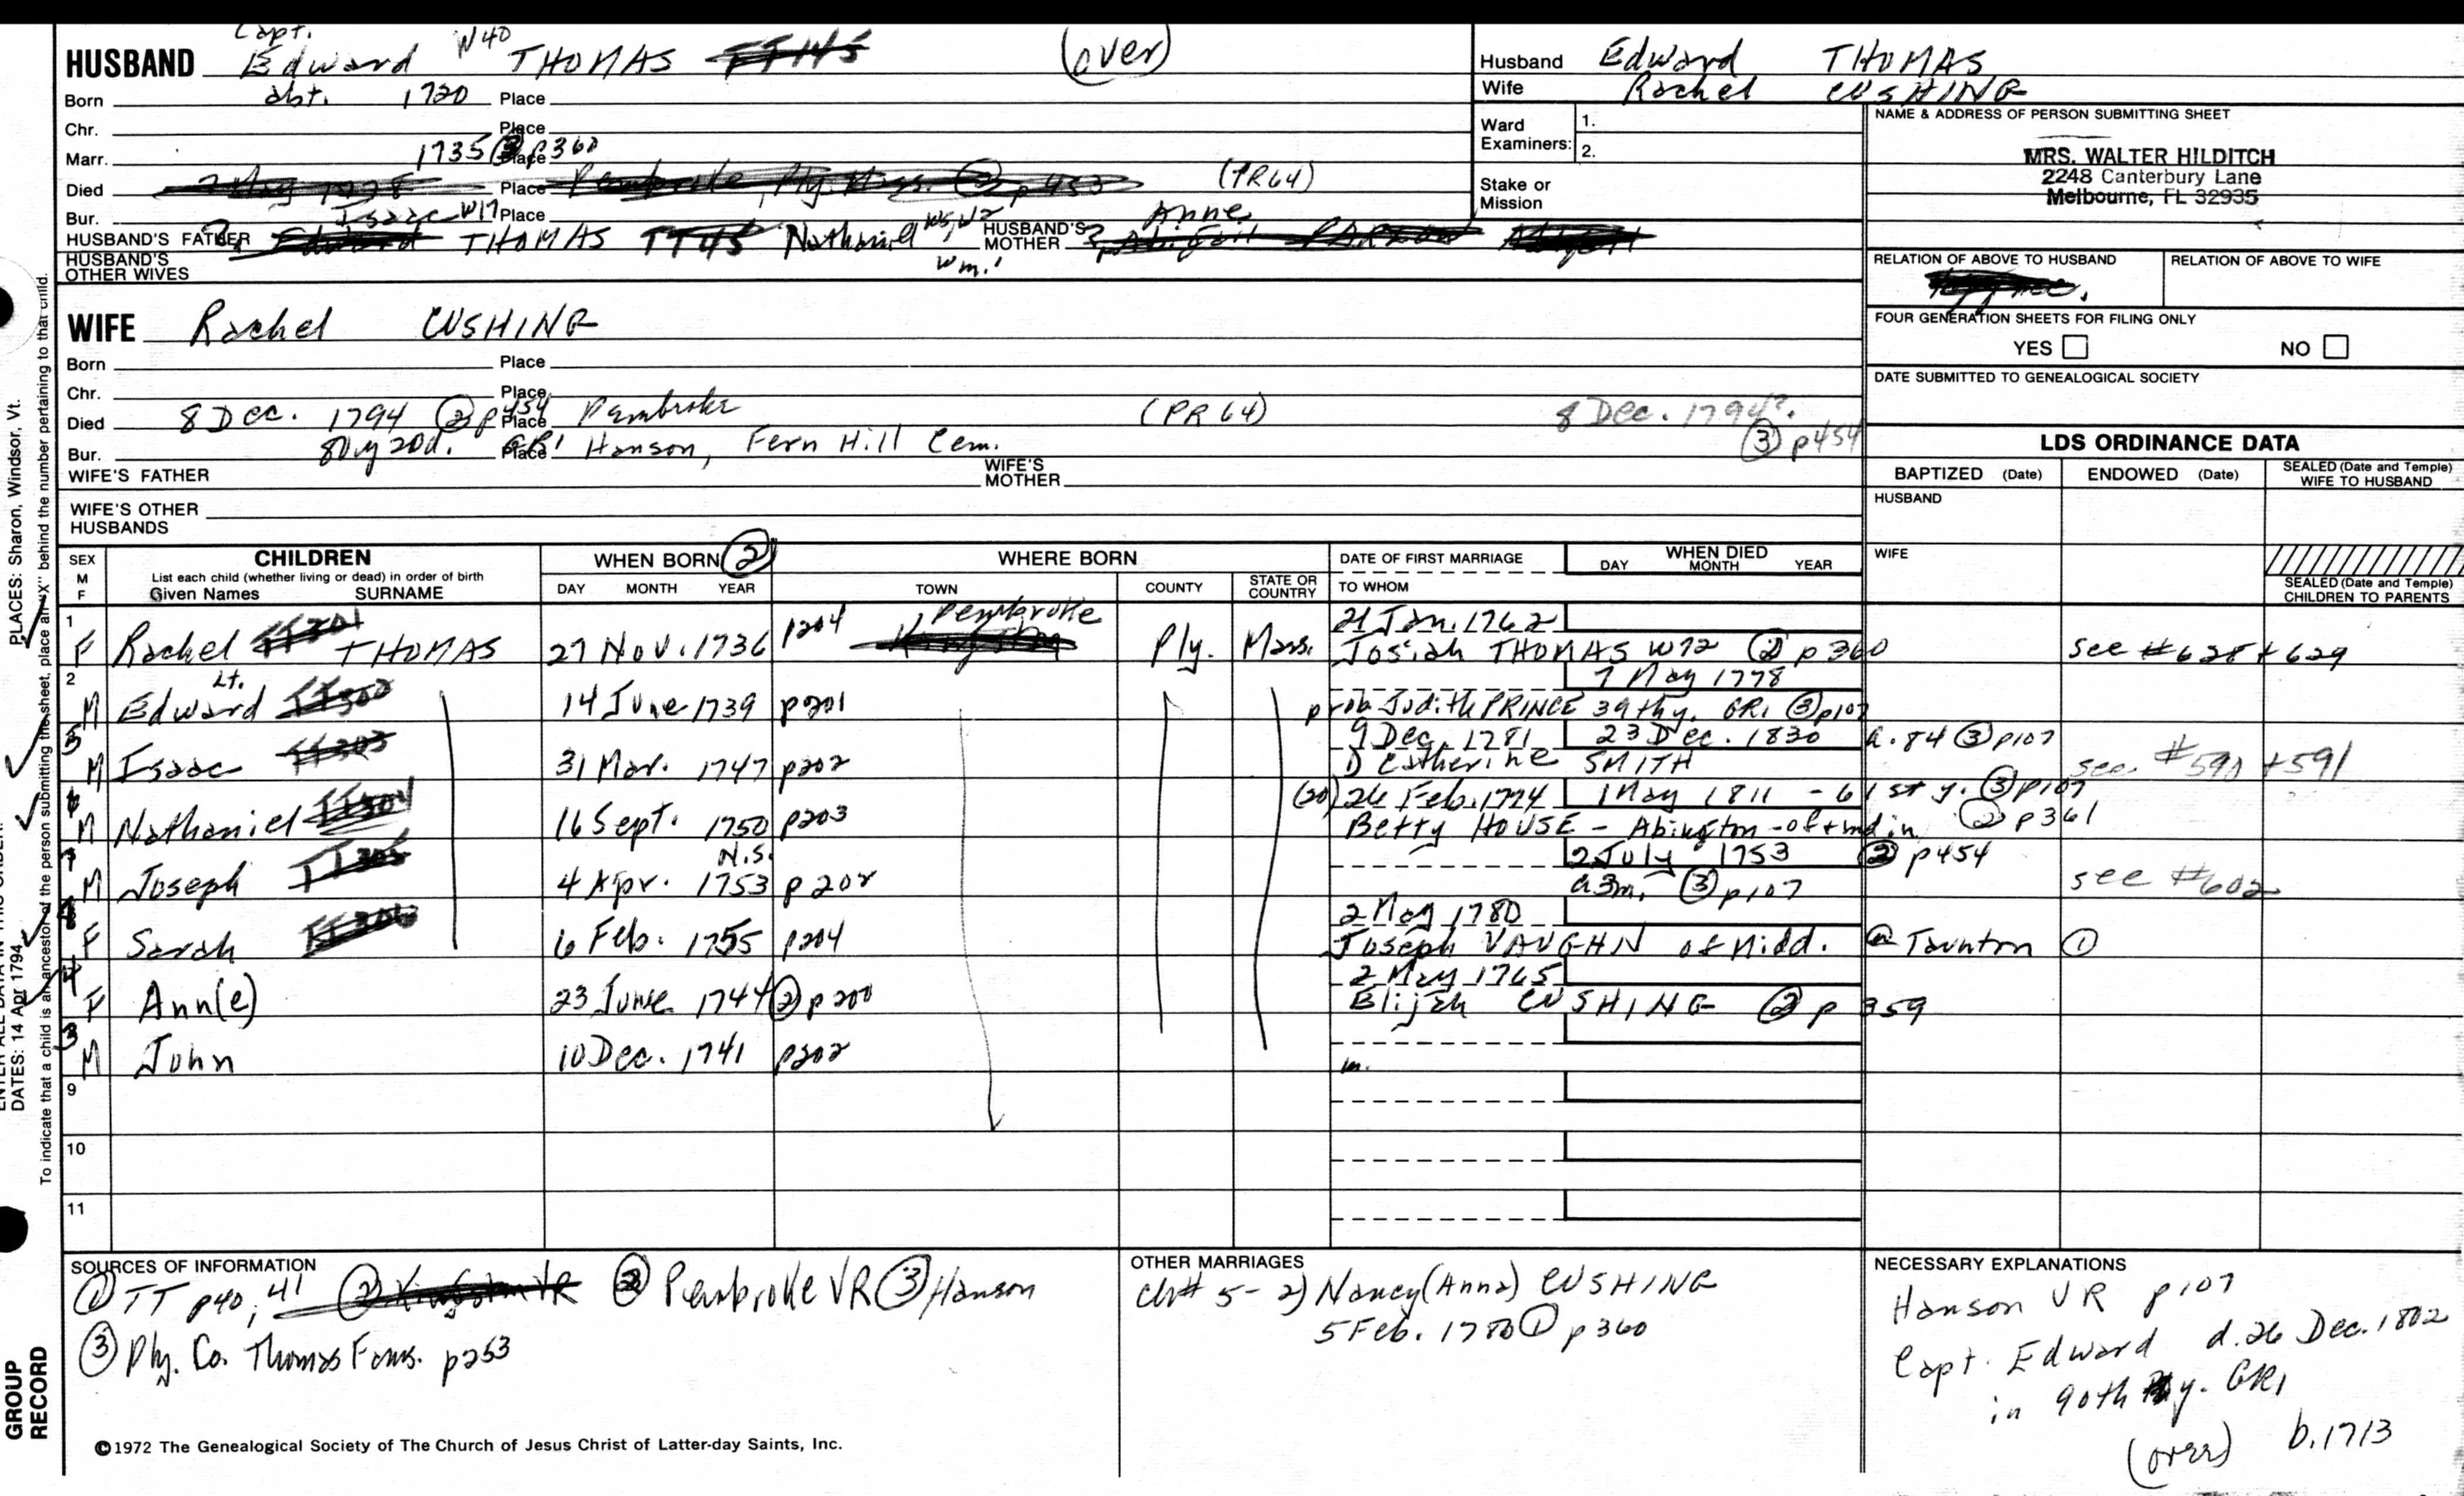 Capt.
HUSBAND Edward W40 THOMAS (over)
Born abt. 1720 Place
Chr. Place
Marr. 1735 p360 Place
Died Place (PR64)
Bur. Place
Isaac W17 Anne
HUSBAND'S FATHER THOMAS TT45 Nathaniel HUSBAND'S MOTHER
Wm.
HUSBAND'S OTHER WIVES
Husband Edward THOMAS
Wife Rachel CUSHING
Ward Examiners: 1.
2.
Stake or Mission
NAME & ADDRESS OF PERSON SUBMITTING SHEET
MRS. WALTER HILDITCH
2248 Canterbury Lane
Melbourne, FL 32935
RELATION OF ABOVE TO HUSBAND RELATION OF ABOVE TO WIFE
FOUR GENERATION SHEETS FOR FILING ONLY
YES NO
DATE SUBMITTED TO GENEALOGICAL SOCIETY
WIFE Rachel CUSHING
Born Place
Chr. Place
Died 8 Dec. 1794 p454 Place Pembroke (PR64) 8 Dec. 1794?
Bur. 20d. GR1 Place Hanson, Fern Hill Cem. ③ p454
WIFE'S FATHER WIFE'S MOTHER
WIFE'S OTHER HUSBANDS
LDS ORDINANCE DATA
BAPTIZED (Date) ENDOWED (Date) SEALED (Date and Temple) WIFE TO HUSBAND
HUSBAND
WIFE
SEALED (Date and Temple) CHILDREN TO PARENTS
SEX M F CHILDREN WHEN BORN ② WHERE BORN DATE OF FIRST MARRIAGE WHEN DIED
List each child (whether living or dead) in order of birth
Given Names SURNAME DAY MONTH YEAR TOWN COUNTY STATE OR COUNTRY TO WHOM DAY MONTH YEAR
1 Pembroke 21 Jan. 1762
F Rachel THOMAS 27 Nov. 1736 p204 Ply. Mass. Josiah THOMAS W72 ② p360 see #628 + 629
2 Lt. 7 May 1778
M Edward 14 June 1739 p201 prob. Judith PRINCE 39thy. GR1 ③ p107
5 9 Dec. 1781 23 Dec. 1830 a. 84 ③ p107
M Isaac 31 Mar. 1747 p202 Catherine SMITH see #590 + 591
6 (20) 26 Feb. 1774 1 May 1811 - 61st y. ③ p107
M Nathaniel 16 Sept. 1750 p203 Betty HOUSE - Abington - of + md in ② p361
7 N.S. 2 July 1753 ② p454
M Joseph 4 Apr. 1753 p202 a3m. ③ p107 see #602
8 2 May 1780
F Sarah 6 Feb. 1755 p204 Joseph VAUGHN of Midd. @ Taunton ①
4 2 May 1765
F Ann(e) 23 June 1744 ② p200 Elijah CUSHING ② p359
3
M John 10 Dec. 1741 p202 m.
9
10
11
SOURCES OF INFORMATION
① TT p40, 41 ② Pembroke VR ③ Hanson
③ Ply. Co. Thomas Fams. p253
©1972 The Genealogical Society of The Church of Jesus Christ of Latter-day Saints, Inc.
OTHER MARRIAGES
ch# 5 - 2) Nancy (Anna) CUSHING
5 Feb. 1780 p360
NECESSARY EXPLANATIONS
Hanson VR p107
Capt. Edward d. 26 Dec. 1802
in 90th y. GR1
(over) b. 1713
PLACES: Sharon, Windsor, Vt.
DATES: 14 Apr 1794
To indicate that a child is an ancestor of the person submitting the sheet, place an "X" behind the number pertaining to that child.
GROUP RECORD